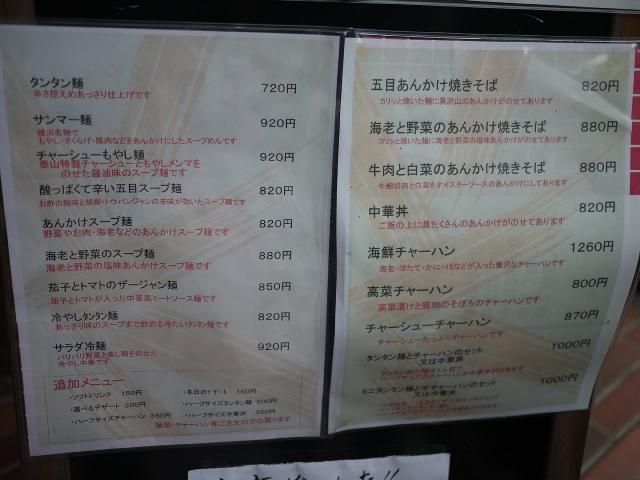 タンタン麺 720円
辛さ控えめあっさり仕上げです
サンマー麺 920円
横浜名物で
もやし・きくらげ・豚肉などをあんかけにしたスープめんです
チャーシューもやし麺 920円
泰山特製チャーシューともやしメンマを
のせた醤油味のスープ麺です
酸っぱくて辛い五目スープ麺 820円
お酢の酸味と胡椒・トウバンジャンの辛味が効いたスープ麺です
あんかけスープ麺 820円
野菜やお肉・海老などのあんかけスープ麺です
海老と野菜のスープ麺 880円
海老と野菜の塩味あんかけスープ麺です
茄子とトマトのザージャン麺 850円
茄子とトマトが入った中華風ミートソース麺です
冷やしタンタン麺 820円
あっさり味のスープまで飲める冷たいタンタン麺です
サラダ冷麺 920円
パリパリ野菜と蒸し鶏をのせた
冷やし中華です
追加メニュー
・ソフトドリンク 150円 ・本日のデザート 150円
・選べるデザート 200円 ・ハーフサイズタンタン麺 500円
・ハーフサイズチャーハン 350円 ・ハーフサイズ中華丼 350円
麺類・チャーハン等ご注文の方の限ります
五目あんかけ焼きそば 820円
カリッと焼いた麺に具沢山のあんかけがのせてあります
海老と野菜のあんかけ焼きそば 880円
カリッと焼いた麺に海老と野菜の塩味あんかけがのせてあります
牛肉と白菜のあんかけ焼きそば 880円
牛細切肉と白菜をオイスターソースのあんかけにしてあります
中華丼 820円
ご飯の上に具たくさんのあんかけがのせてあります
海鮮チャーハン 1260円
海老・ほたて・かに・イカなどが入った贅沢なチャーハンです
高菜チャーハン 800円
高菜漬けと豚肉のそぼろのチャーハンです
チャーシューチャーハン 870円
チャーシューたっぷりチャーハンです
タンタン麺とチャーハンのセット 1000円
又は中華丼
ミニタンタン麺と半チャーハンのセット 1000円
又は中華丼